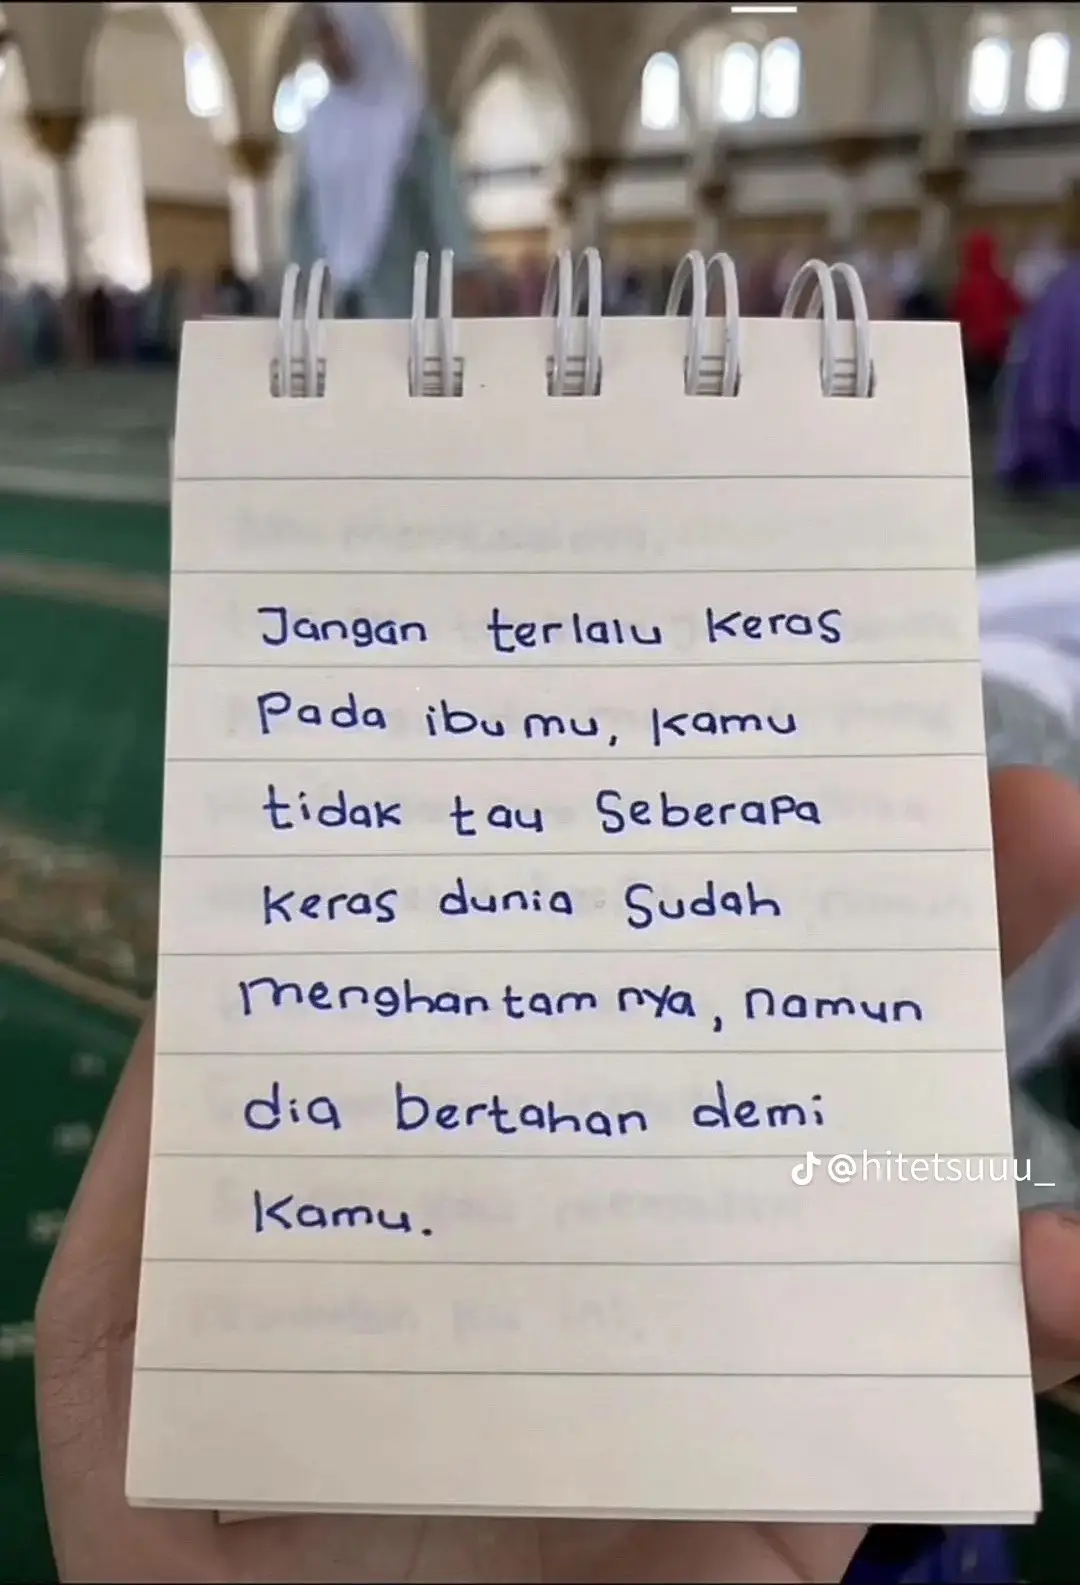 Jangan terlalu keras
Pada ibumu, kamu
tidak tau Seberapa
keras dunia Sudah
menghantamnya, namun
dia bertahan demi
kamu.
@hitetsuuu_